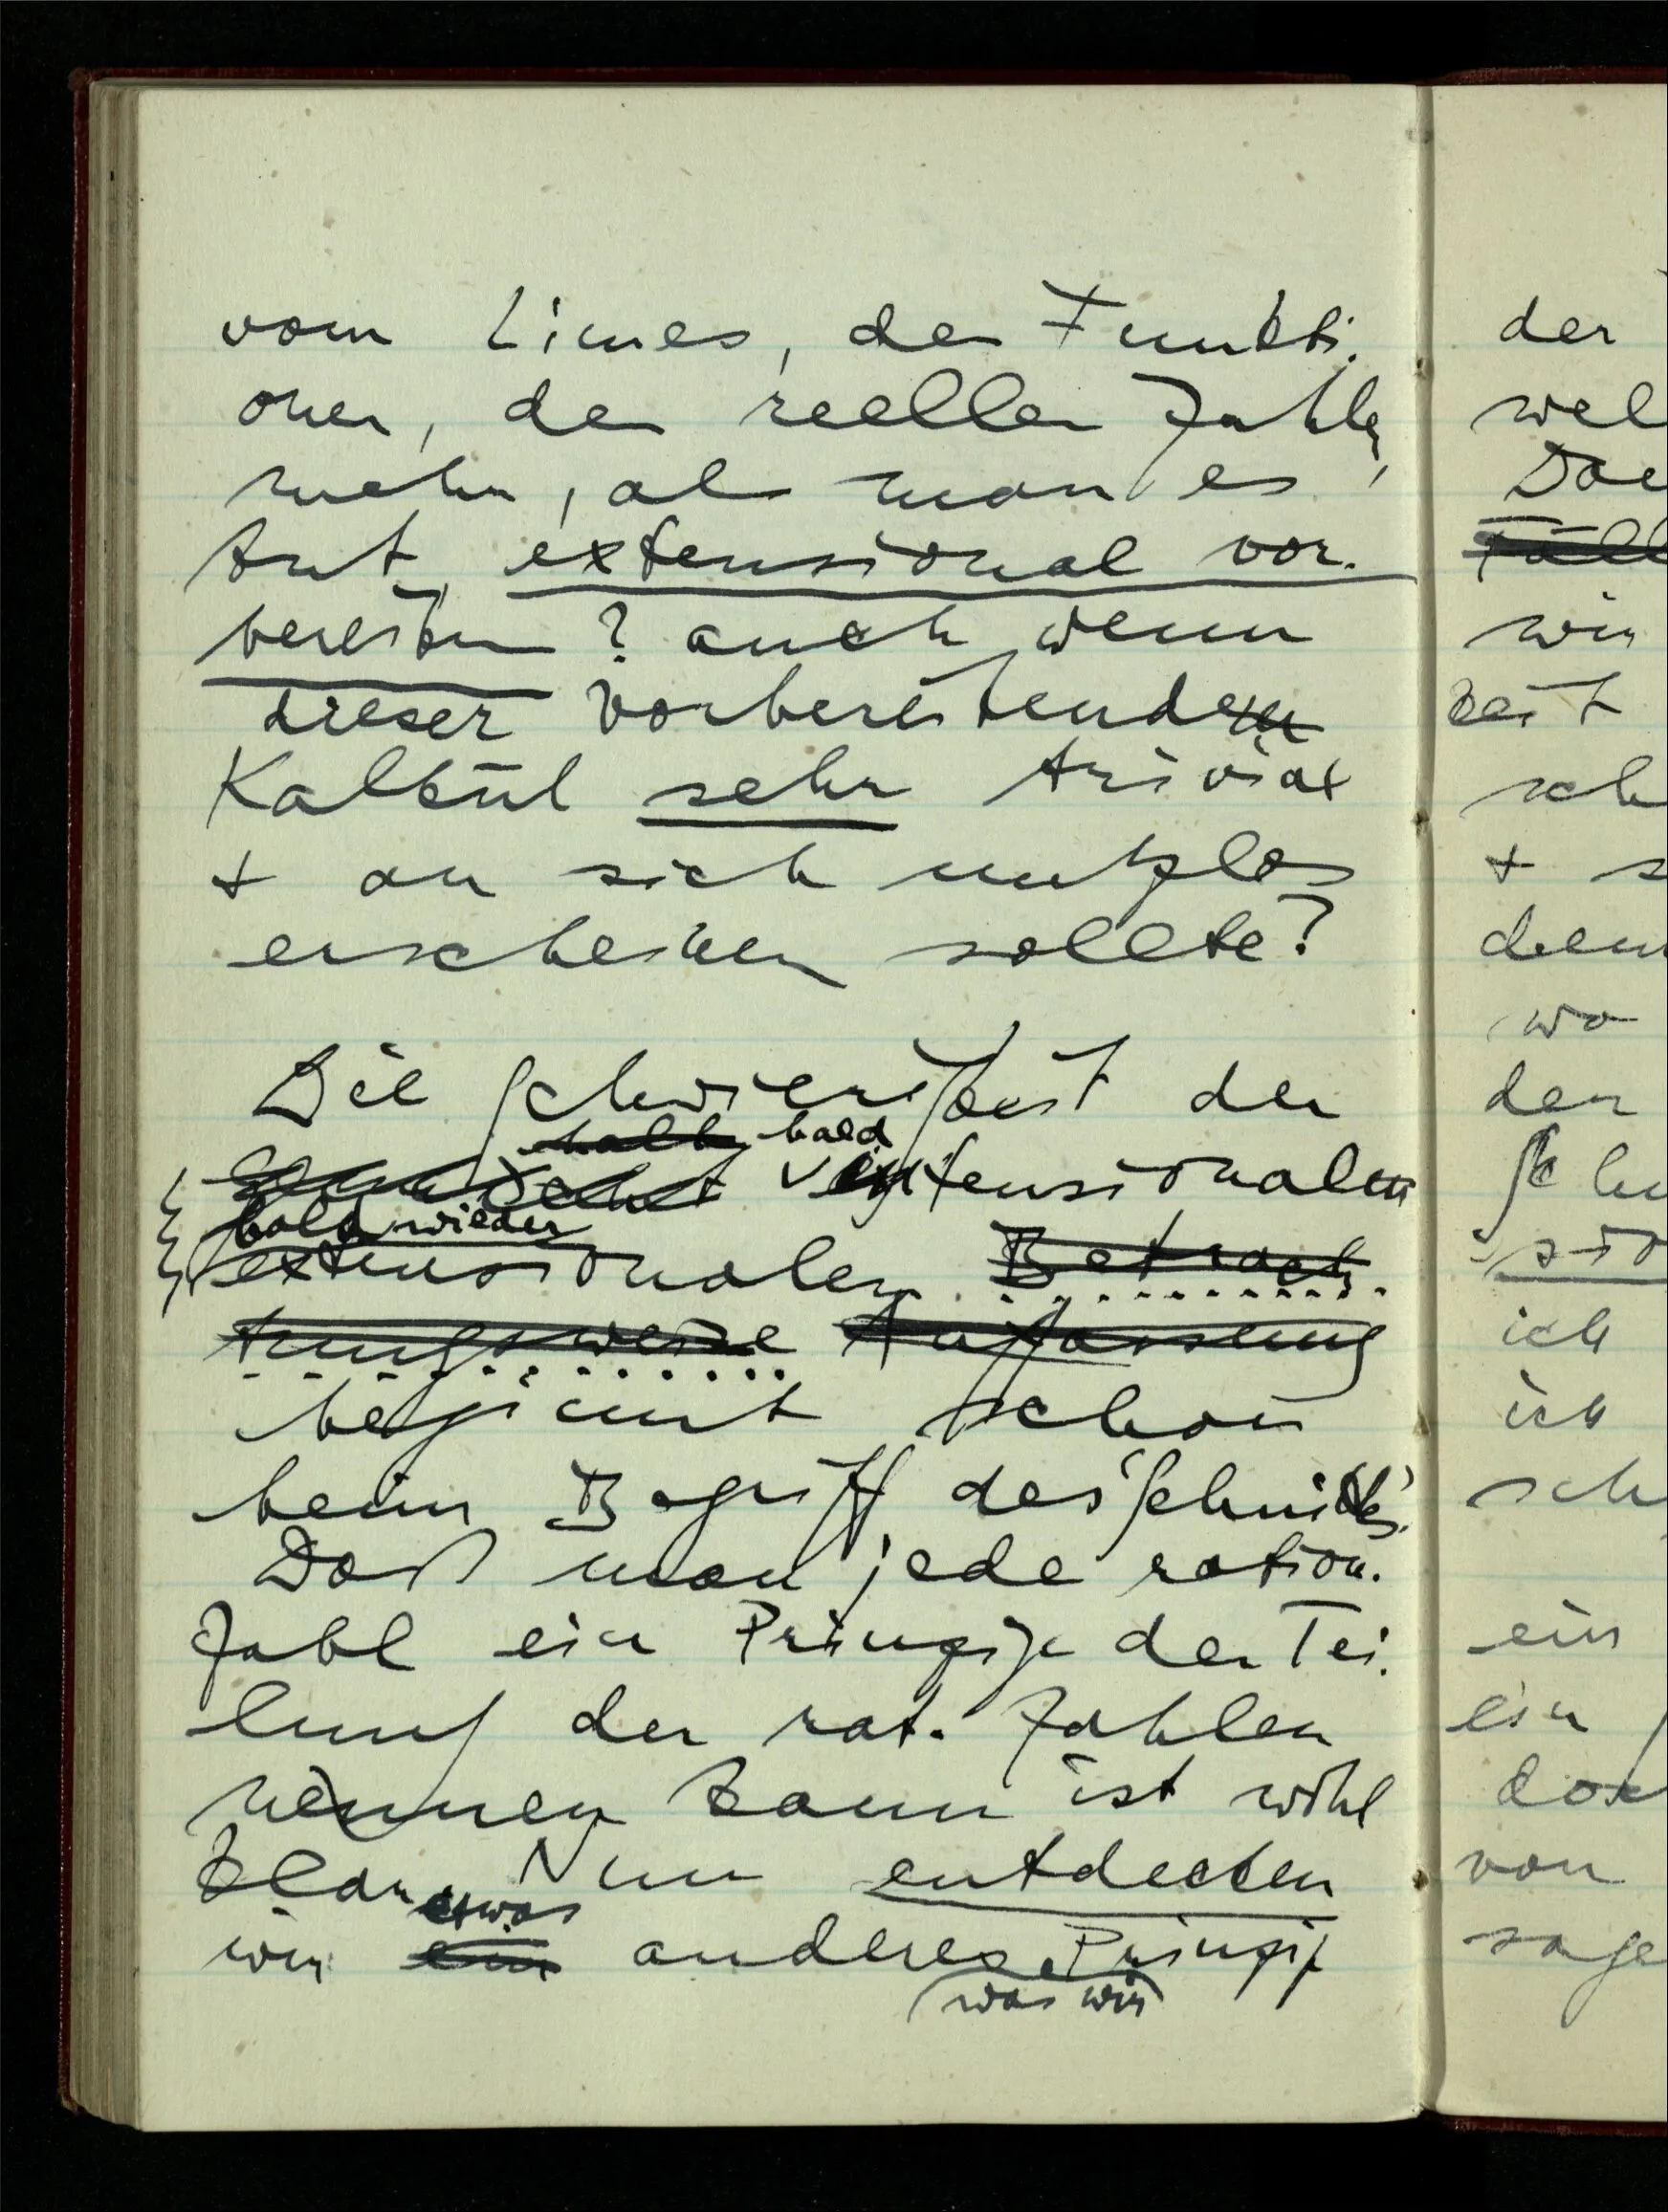 vom Limes, den Funkti-
onen, den reellen Zahlen,
mehr, als man es
tut, extensional vor-
bereiten? auch wenn
dieser vorbereitende
Kalkül sehr trivial
+ an sich nutzlos
erscheinen sollte?
Die Schwierigkeit der
halb bald
intensionalen
bald wieder
extensionalen Betrach-
tungsweise Auffassung
beginnt schon
beim Begriff des 'Schnitts'.
Daß man jede ration.
Zahl ein Prinzip der Tei-
lung der rat. Zahlen
nennen kann ist wohl
klar. Nun entdecken
etwas
wir ein anderes Prinzip
was wir
der
wel
Doc
Fäll
wir
keit
sch
+ s
dem
wo
den
Schn
sio
ich
ich
sch
ein
ein
doc
von
sage